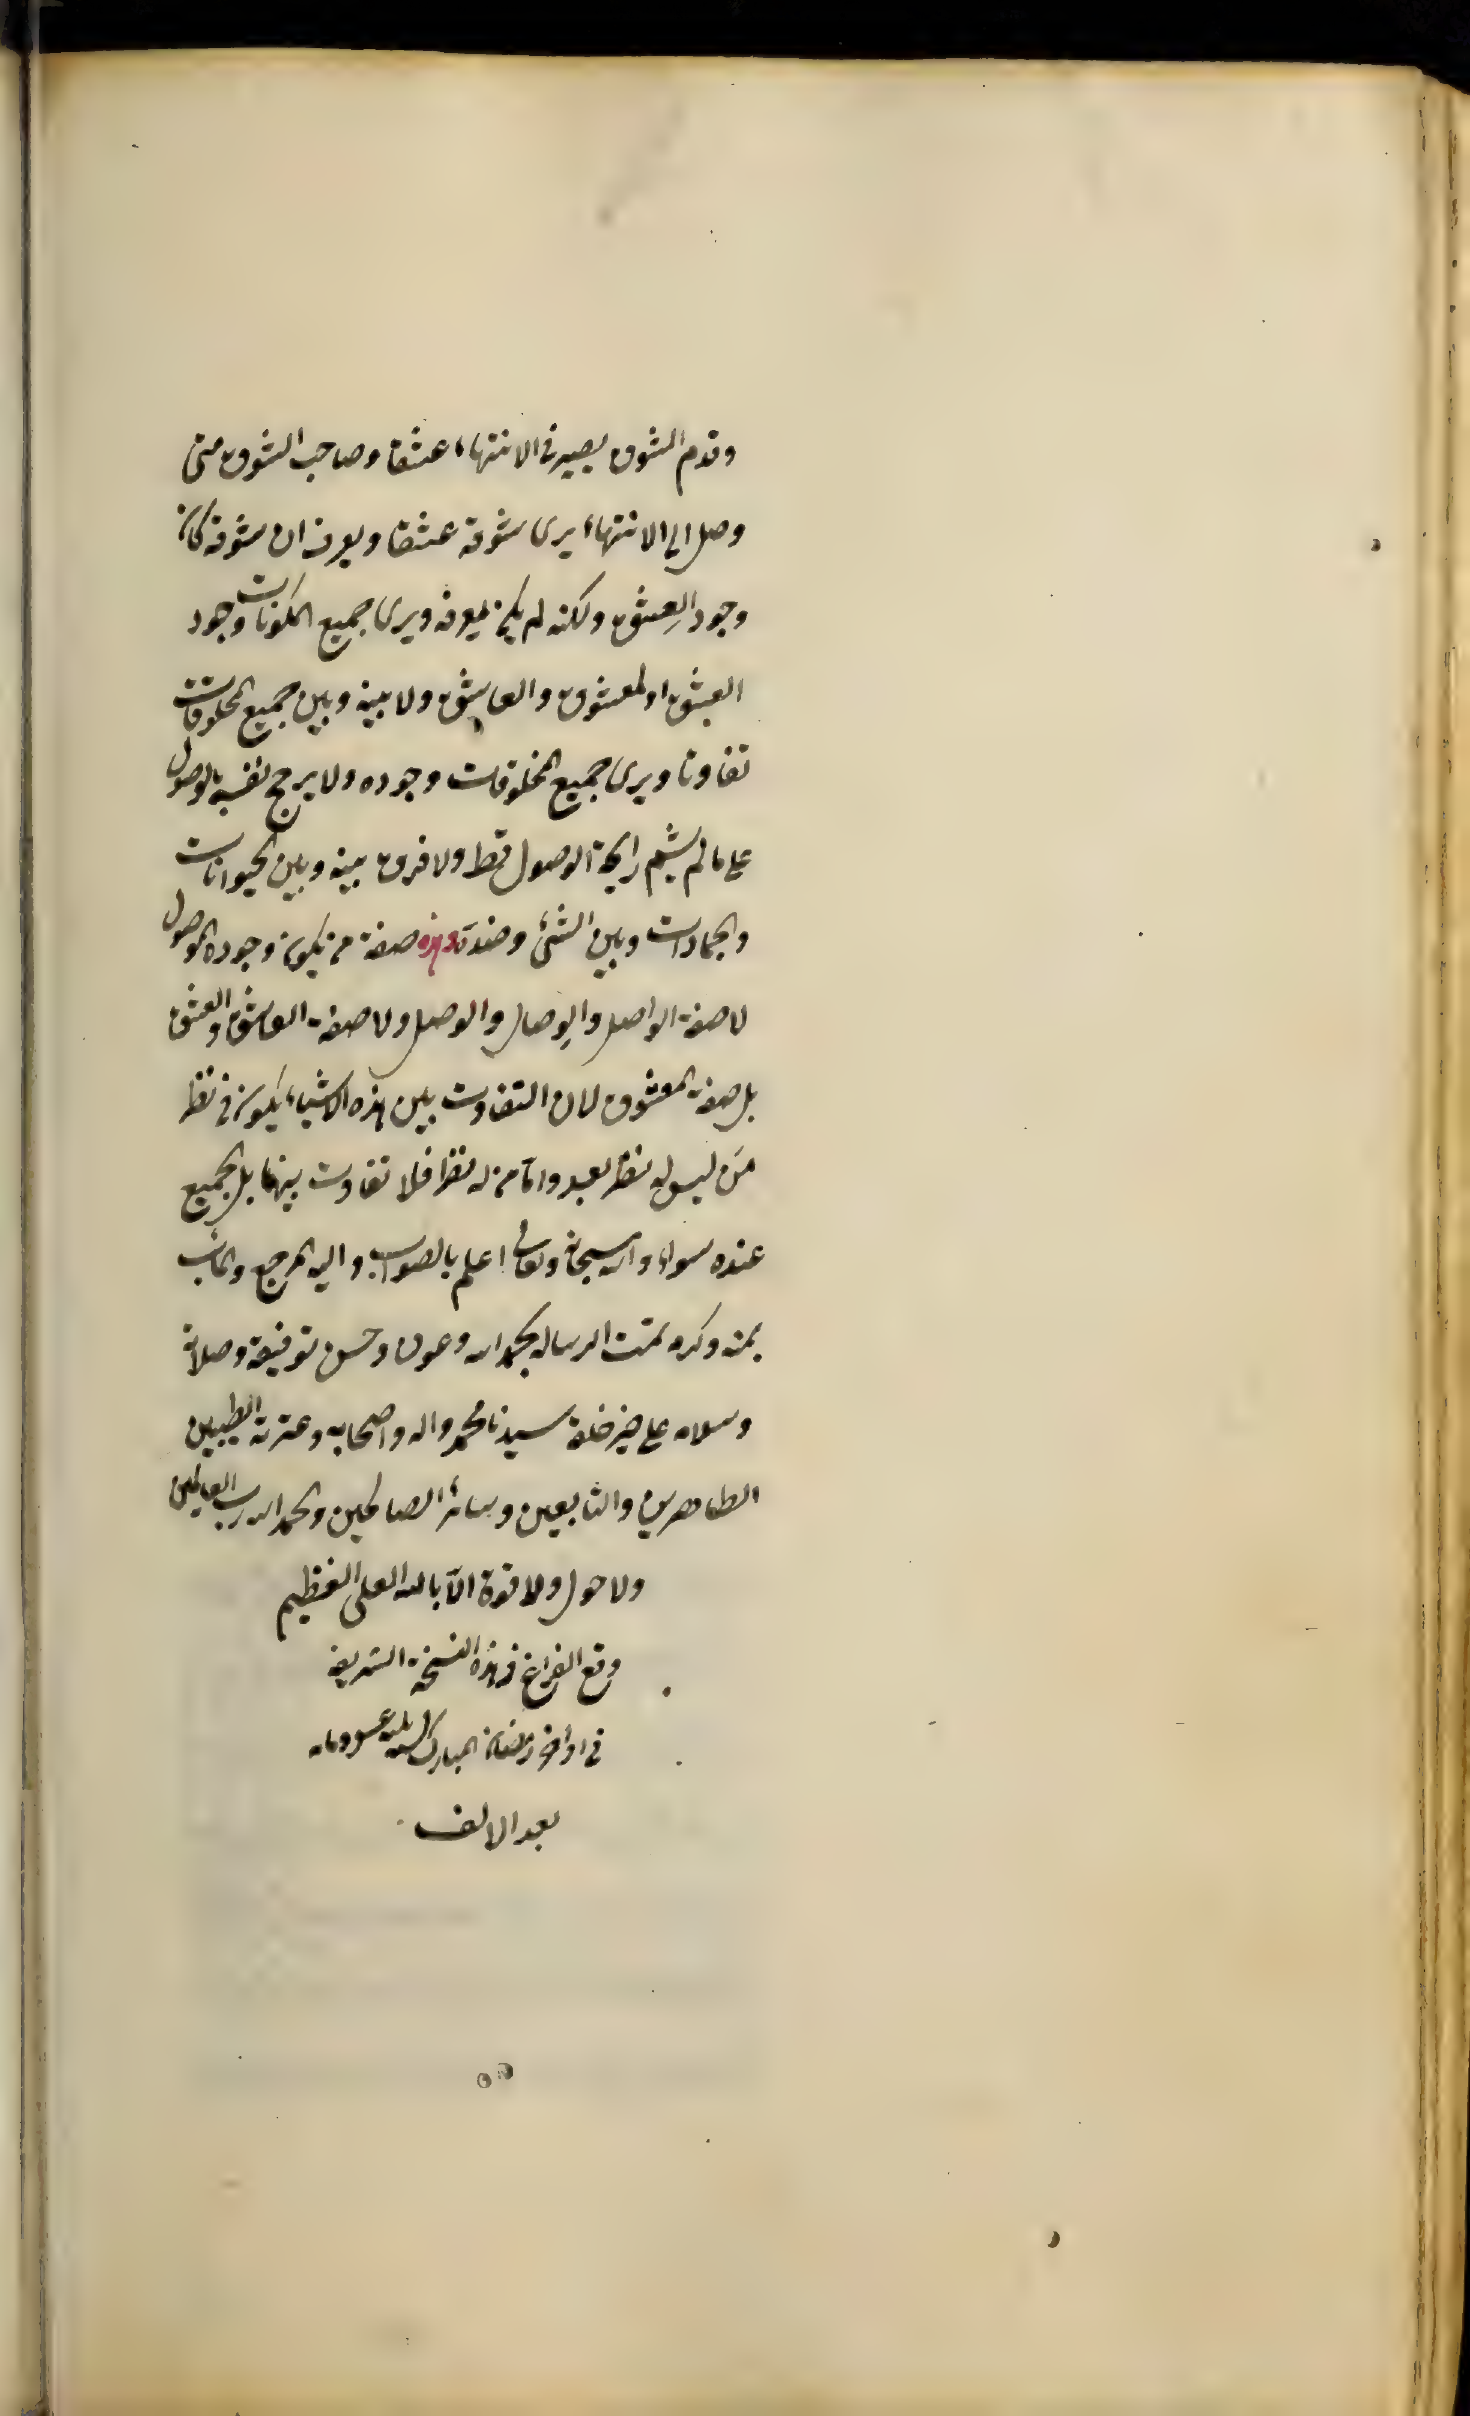 وقدم الشوق يصير في الانتهاء عشقا وصاحب الشوق متى
وصل الى الانتهاء يرى شوقه عشقا ويعرف ان شوقه كان
وجود العشق ولكنه لم يكن يعرفه ويرى جميع المكونات وجود
العشق او المعشوق والعاشق ولا بينه وبين جميع المخلوقات
تفاوتا ويرى جميع المخلوقات وجوده ولا يرجح نفسه بالوصول
على ما لم يشم رايحة الوصول قط ولا فرق بينه وبين الحيوانات
والجمادات وبين الشئ وضده وهذه صفة من يكون وجوده الموصول
لا صفة الواصل والوصال والوصل ولا صفة العاشق والعشق
بل صفة المعشوق لان التفاوت بين هذه الاشياء يكون في نظر
من ليس له نظر بعد واما من له نظر فلا تفاوت بينها بل الجميع
عنده سواء والله سبحانه وتعالى اعلم بالصواب واليه المرجع والمآب
بمنه وكرمه تمت الرساله بحمد الله وعونه وحسن توفيقه وصلاته
وسلامه على خير خلقه سيدنا محمد واله واصحابه وعترته الطيبين
الطاهرين والتابعين وسائر الصالحين والحمد لله رب العالمين
ولا حول ولا قوة الا بالله العلى العظيم
وقع الفراغ من هذه النسخة الشريفة
في اواخر رمضان المبارك لسنه وماه
بعد الالف